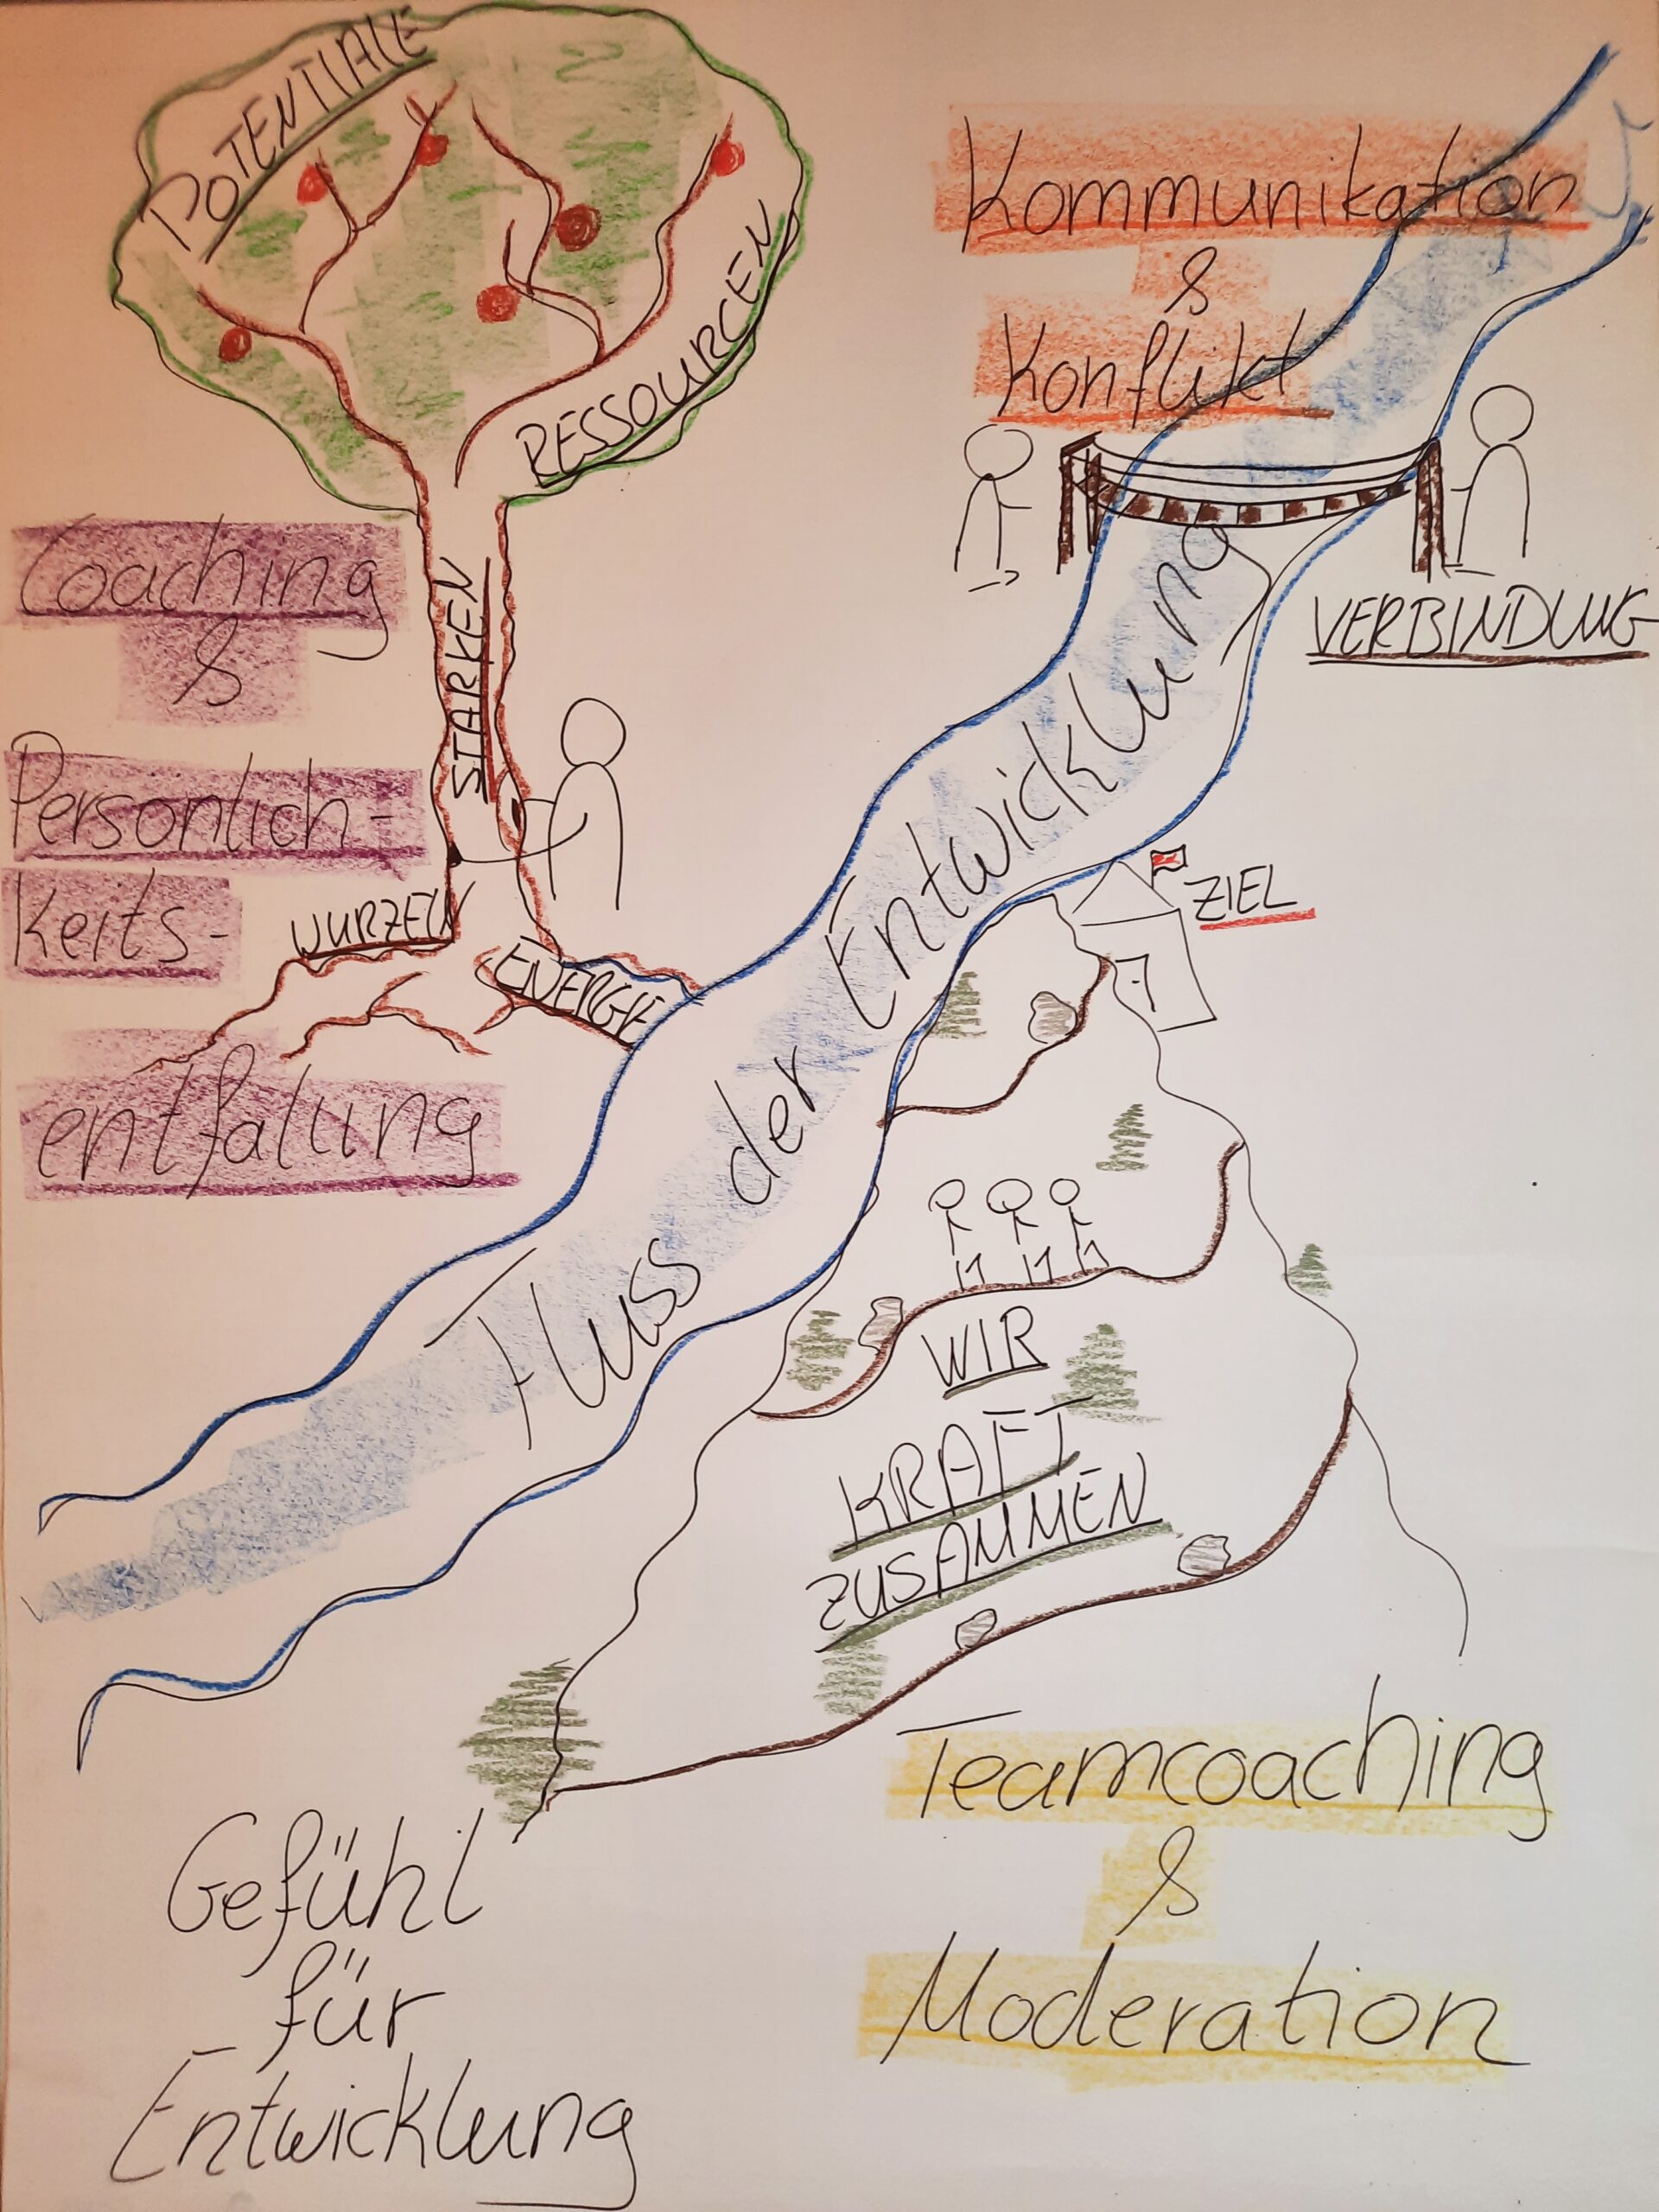 POTENTIALE
RESSOURCEN
Kommunikation
&
Konflikt
VERBINDUNG
Coaching
&
Persönlich-
keits-
entfalung
STÄRKEN
WURZELN
ENERGIE
Fluss der Entwicklung
ZIEL
WIR
KRAFT
ZUSAMMEN
Teamcoaching
&
Moderation
Gefühl
für
Entwicklung